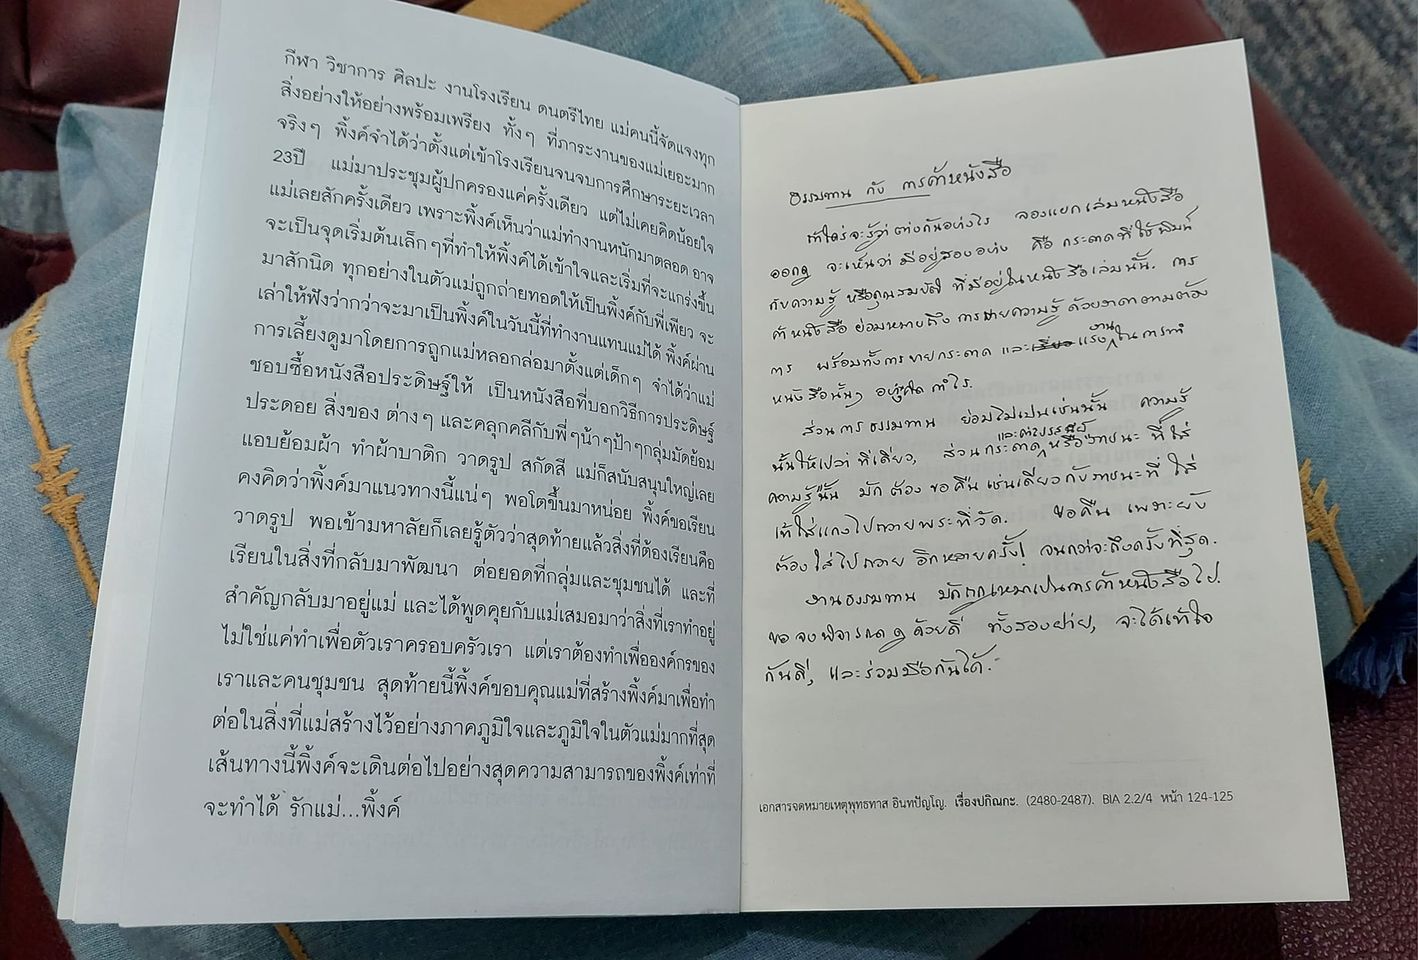 กีฬา วิชาการ ศิลปะ งานโรงเรียน ดนตรีไทย แม่คนนี้จัดแจงทุก
สิ่งอย่างให้อย่างพร้อมเพรียง ทั้งๆ ที่ภาระงานของแม่เยอะมาก
จริงๆ พิ้งค์จำได้ว่าตั้งแต่เข้าโรงเรียนจนจบการศึกษาระยะเวลา
23ปี แม่มาประชุมผู้ปกครองแค่ครั้งเดียว แต่ไม่เคยคิดน้อยใจ
แม่เลยสักครั้งเดียว เพราะพิ้งค์เห็นว่าแม่ทำงานหนักมาตลอด อาจ
จะเป็นจุดเริ่มต้นเล็กๆที่ทำให้พิ้งค์ได้เข้าใจและเริ่มที่จะแกร่งขึ้น
มาสักนิด ทุกอย่างในตัวแม่ถูกถ่ายทอดให้เป็นพิ้งค์กับพี่เพียว จะ
เล่าให้ฟังว่ากว่าจะมาเป็นพิ้งค์ในวันนี้ที่ทำงานแทนแม่ได้ พิ้งค์ผ่าน
การเลี้ยงดูมาโดยการถูกแม่หลอกล่อมาตั้งแต่เด็กๆ จำได้ว่าแม่
ชอบซื้อหนังสือประดิษฐ์ให้ เป็นหนังสือที่บอกวิธีการประดิษฐ์
ประดอย สิ่งของ ต่างๆ และคลุกคลีกับพี่ๆน้าๆป้าๆกลุ่มมัดย้อม
แอบย้อมผ้า ทำผ้าบาติก วาดรูป สกัดสี แม่ก็สนับสนุนใหญ่เลย
คงคิดว่าพิ้งค์มาแนวทางนี้แน่ๆ พอโตขึ้นมาหน่อย พิ้งค์ขอเรียน
วาดรูป พอเข้ามหาลัยก็เลยรู้ตัวว่าสุดท้ายแล้วสิ่งที่ต้องเรียนคือ
เรียนในสิ่งที่กลับมาพัฒนา ต่อยอดที่กลุ่มและชุมชนได้ และที่
สำคัญกลับมาอยู่แม่ และได้พูดคุยกับแม่เสมอมาว่าสิ่งที่เราทำอยู่
ไม่ใช่แค่ทำเพื่อตัวเราครอบครัวเรา แต่เราต้องทำเพื่อองค์กรของ
เราและคนชุมชน สุดท้ายนี้พิ้งค์ขอบคุณแม่ที่สร้างพิ้งค์มาเพื่อทำ
ต่อในสิ่งที่แม่สร้างไว้อย่างภาคภูมิใจและภูมิใจในตัวแม่มากที่สุด
เส้นทางนี้พิ้งค์จะเดินต่อไปอย่างสุดความสามารถของพิ้งค์เท่าที่
จะทำได้ รักแม่...พิ้งค์
ธรรมทาน กับ การค้าหนังสือ
ถ้าใคร่จะรู้ว่า ต่างกันอย่างไร ลองแยกเล่มหนังสือ
ออกดู จะเห็นว่า มีอยู่สองอย่าง คือ กระดาดที่ใช้พิมพ์
กับความรู้ หรือคุณสมบัติ ที่มีอยู่ในหนังสือเล่มนั้น. การ
ค้าหนังสือ ย่อมหมายถึง การขายความรู้ ด้วยราคาตามต้อง
การ พร้อมทั้งการขายกระดาด และแรงงานในการทำ
หนังสือนั้นๆ อย่างคิดกำไร.
ส่วนการธรรมทาน ย่อมไม่เป็นเช่นนั้น ความรู้
นั้นให้เปล่าทีเดียว, ส่วนกระดาด หรือภาชนะ ที่ใส่
ความรู้นั้น มักต้องขอคืน เช่นเดียวกับภาชนะที่ใส่
เท้ใส่แกงไปถวายพระที่วัด. ขอคืน เพราะยัง
ต้องใส่ไปถวาย อีกหลายครั้ง! จนกว่าจะถึงครั้งที่สุด.
งานธรรมทาน มักถูกเหมาเป็นการค้าหนังสือไป.
ขอจงพิจารณาดูด้วยดี ทั้งสองฝ่าย, จะได้เข้าใจ
กันดี, และร่วมมือกันได้.-
เอกสารจดหมายเหตุพุทธทาส อินทปัญโญ. เรื่องปกิณกะ. (2480-2487). BIA 2.2/4 หน้า 124-125